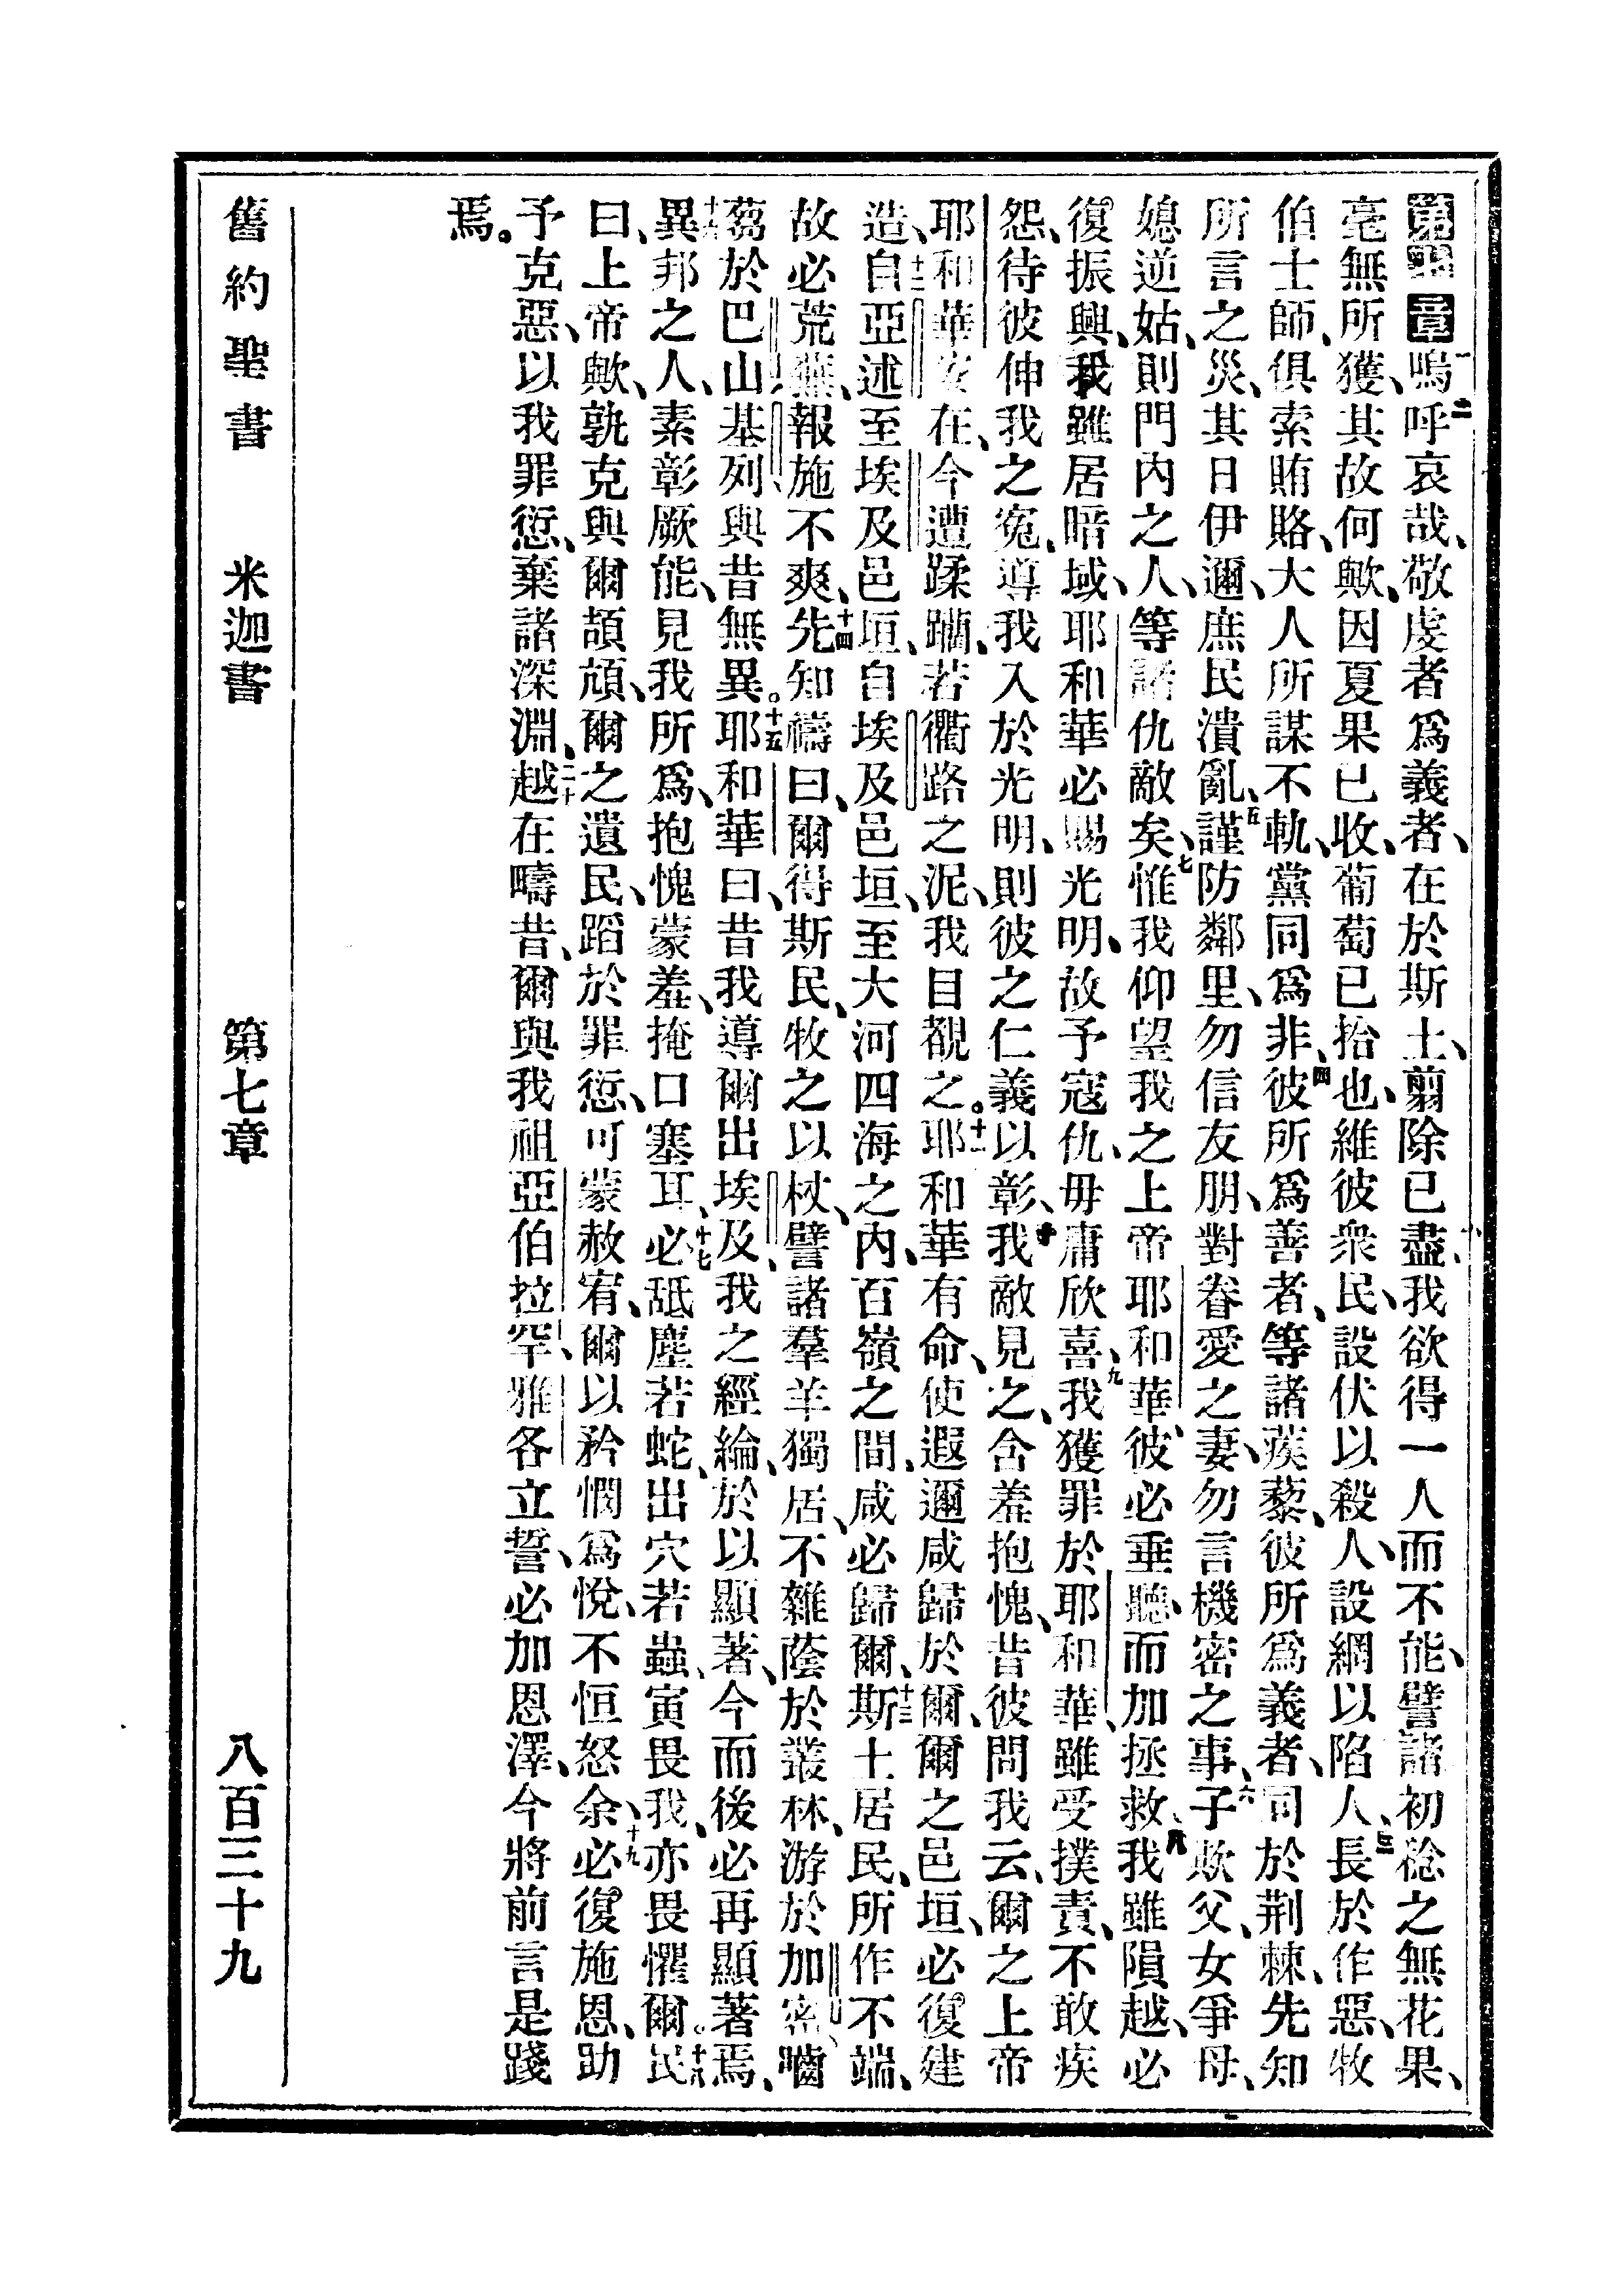 第七章一嗚呼哀哉、二敬虔者爲義者、在於斯土、翦除已盡、我欲得一人而不能、譬諸初稔之無花果、
毫無所獲、其故何歟、因夏果已收、葡萄已拾也、維彼衆民、設伏以殺人、設網以陷人、三長於作惡、牧
伯士師、俱索賄賂、大人所謀不軌、黨同爲非、四彼所爲善者、等諸蒺藜、彼所爲義者、同於荆棘、先知
所言之災、其日伊邇、庶民潰亂、五謹防鄰里、勿信友朋、對眷愛之妻、勿言機密之事、六子欺父、女爭母、
媳逆姑、則門內之人、等諸仇敵矣、七惟我仰望我之上帝耶和華、彼必垂聽、而加拯救、八我雖隕越、必
復振興、我雖居暗域、耶和華必賜光明、故予寇仇、毋庸欣喜、九我獲罪於耶和華、雖受撲責、不敢疾
怨、待彼伸我之冤、導我入於光明、則彼之仁義以彰、十我敵見之、含羞抱愧、昔彼問我云、爾之上帝
耶和華安在、今遭蹂躪、若衢路之泥、我目覩之。十一耶和華有命、使遐邇咸歸於爾、爾之邑垣、必復建
造、十二自亞述至埃及邑垣、自埃及邑垣、至大河四海之內、百嶺之間、咸必歸爾、十三斯土居民、所作不端、
故必荒蕪、報施不爽、十四先知禱曰、爾得斯民、牧之以杖、譬諸羣羊獨居、不雜蔭於叢林、游於加密、嚙
芻於巴山基列、與昔無異。十五耶和華曰、昔我導爾出埃及、我之經綸、於以顯著、今而後必再顯著焉、
十六異邦之人、素彰厥能、見我所爲、抱愧蒙羞、掩口塞耳、十七必舐塵若蛇、出穴若蟲、寅畏我、亦畏懼爾。十八民
曰、上帝歟、孰克與爾頡頏、爾之遺民、蹈於罪愆、可蒙赦宥、爾以矜憫爲悅、不恒怒余、十九必復施恩、助
予克惡、以我罪愆、棄諸深淵、二十越在疇昔、爾與我祖亞伯拉罕、雅各立誓、必加恩澤、今將前言是踐
焉。
舊約聖書　米迦書　第七章　八百三十九